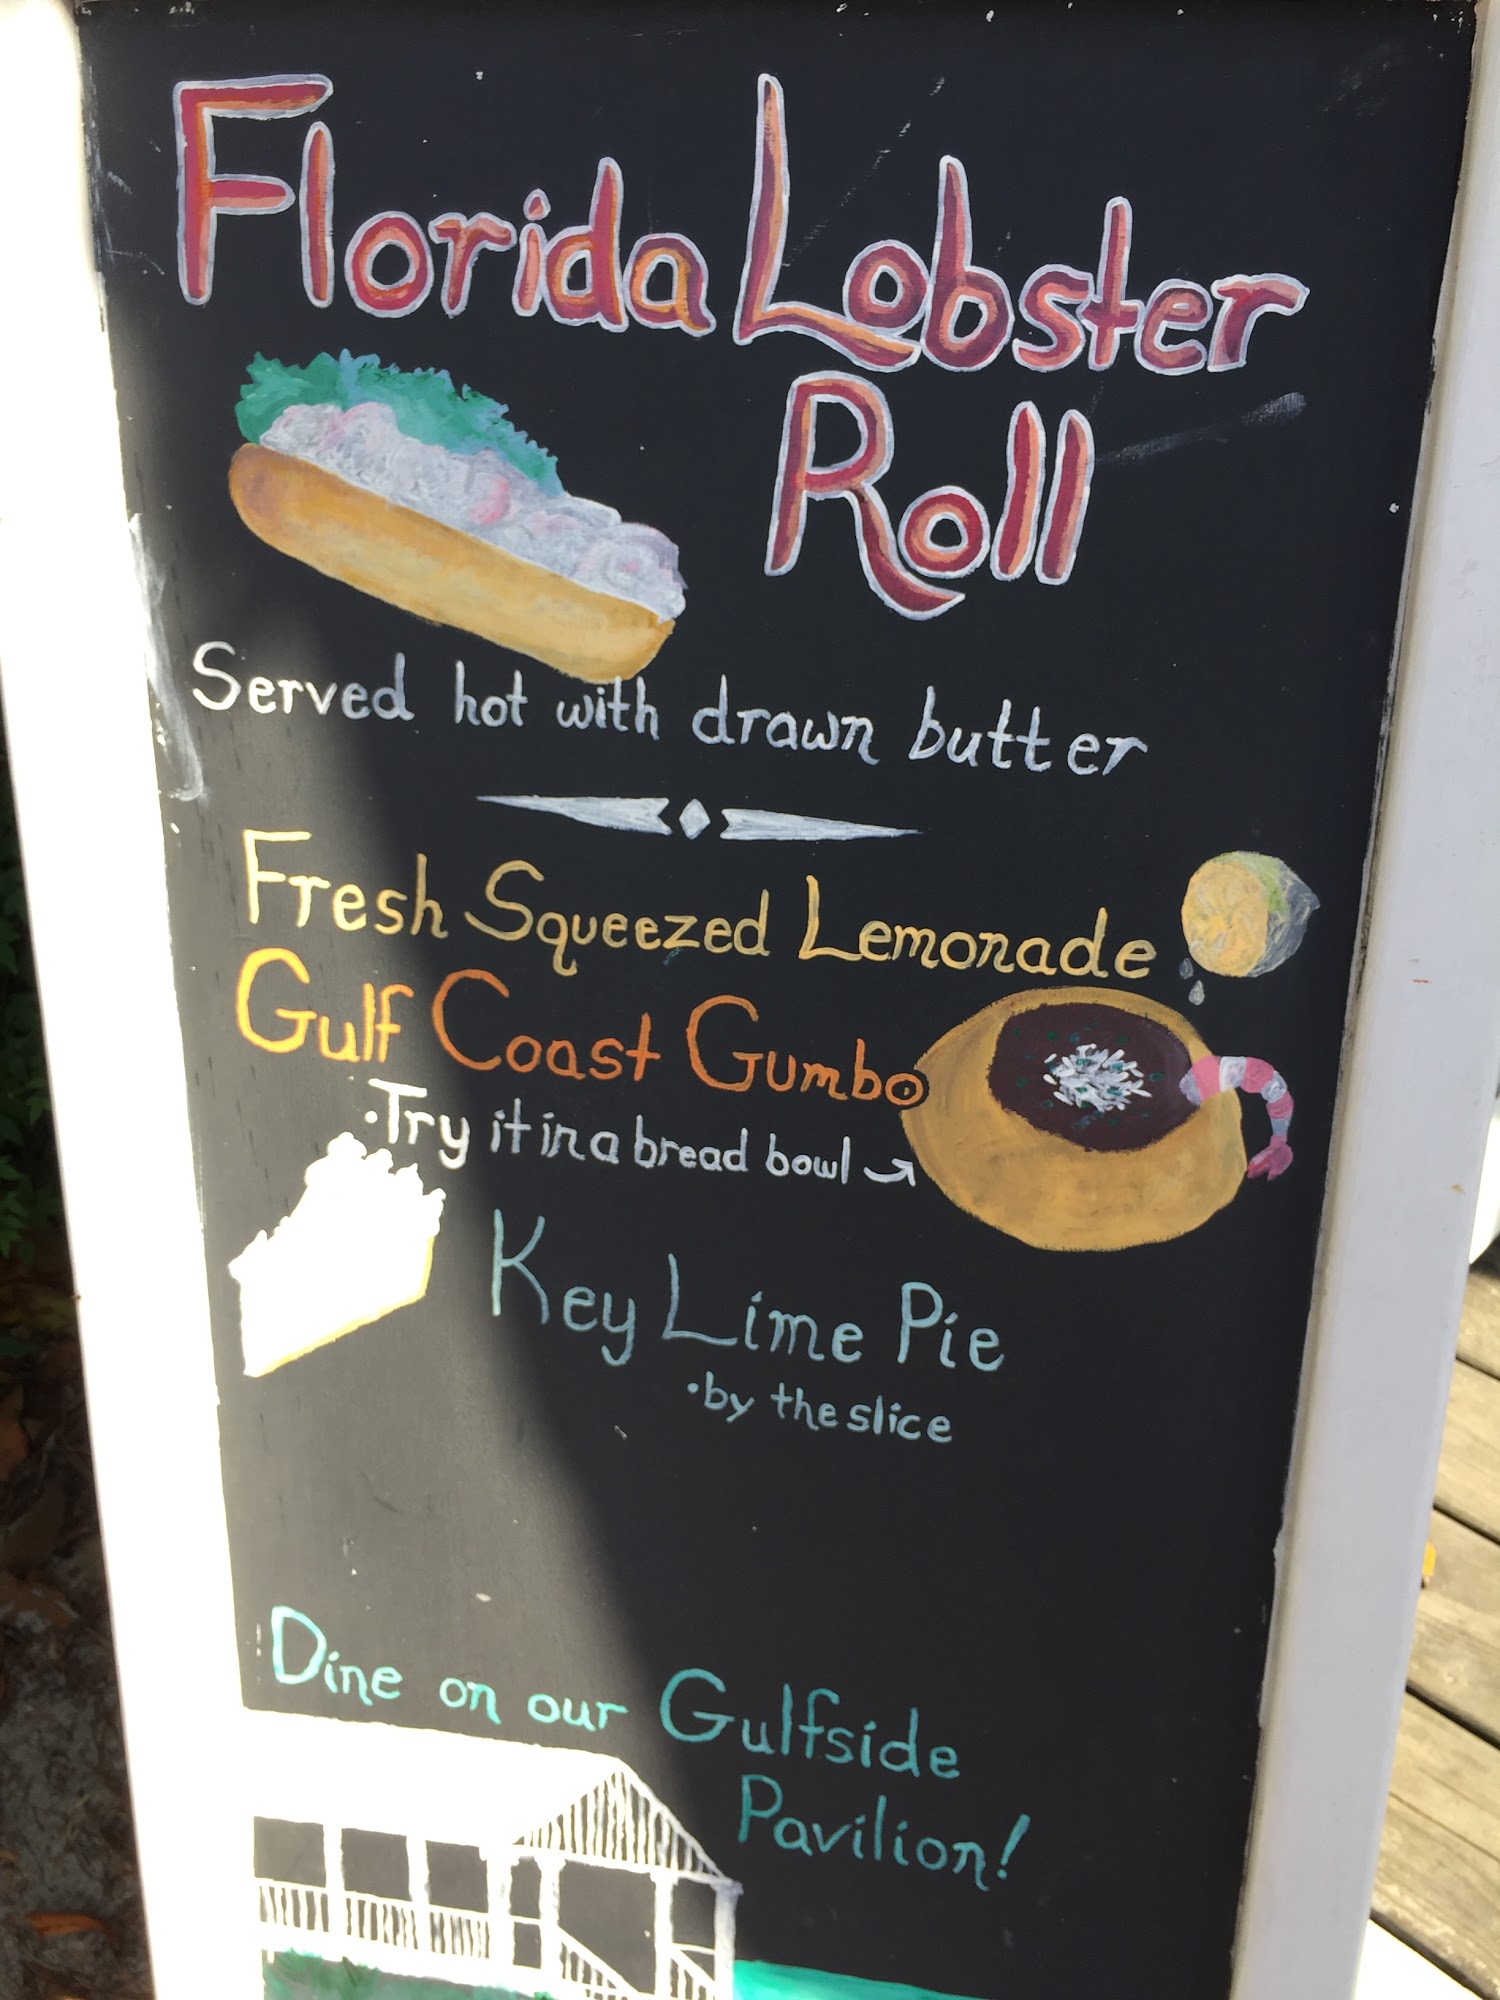 Florida Lobster
Roll
Served hot with drawn butter
Fresh Squeezed Lemonade
Gulf Coast Gumbo
•Try it in a bread bowl →
Key Lime Pie
•by the slice
Dine on our Gulfside
Pavilion!